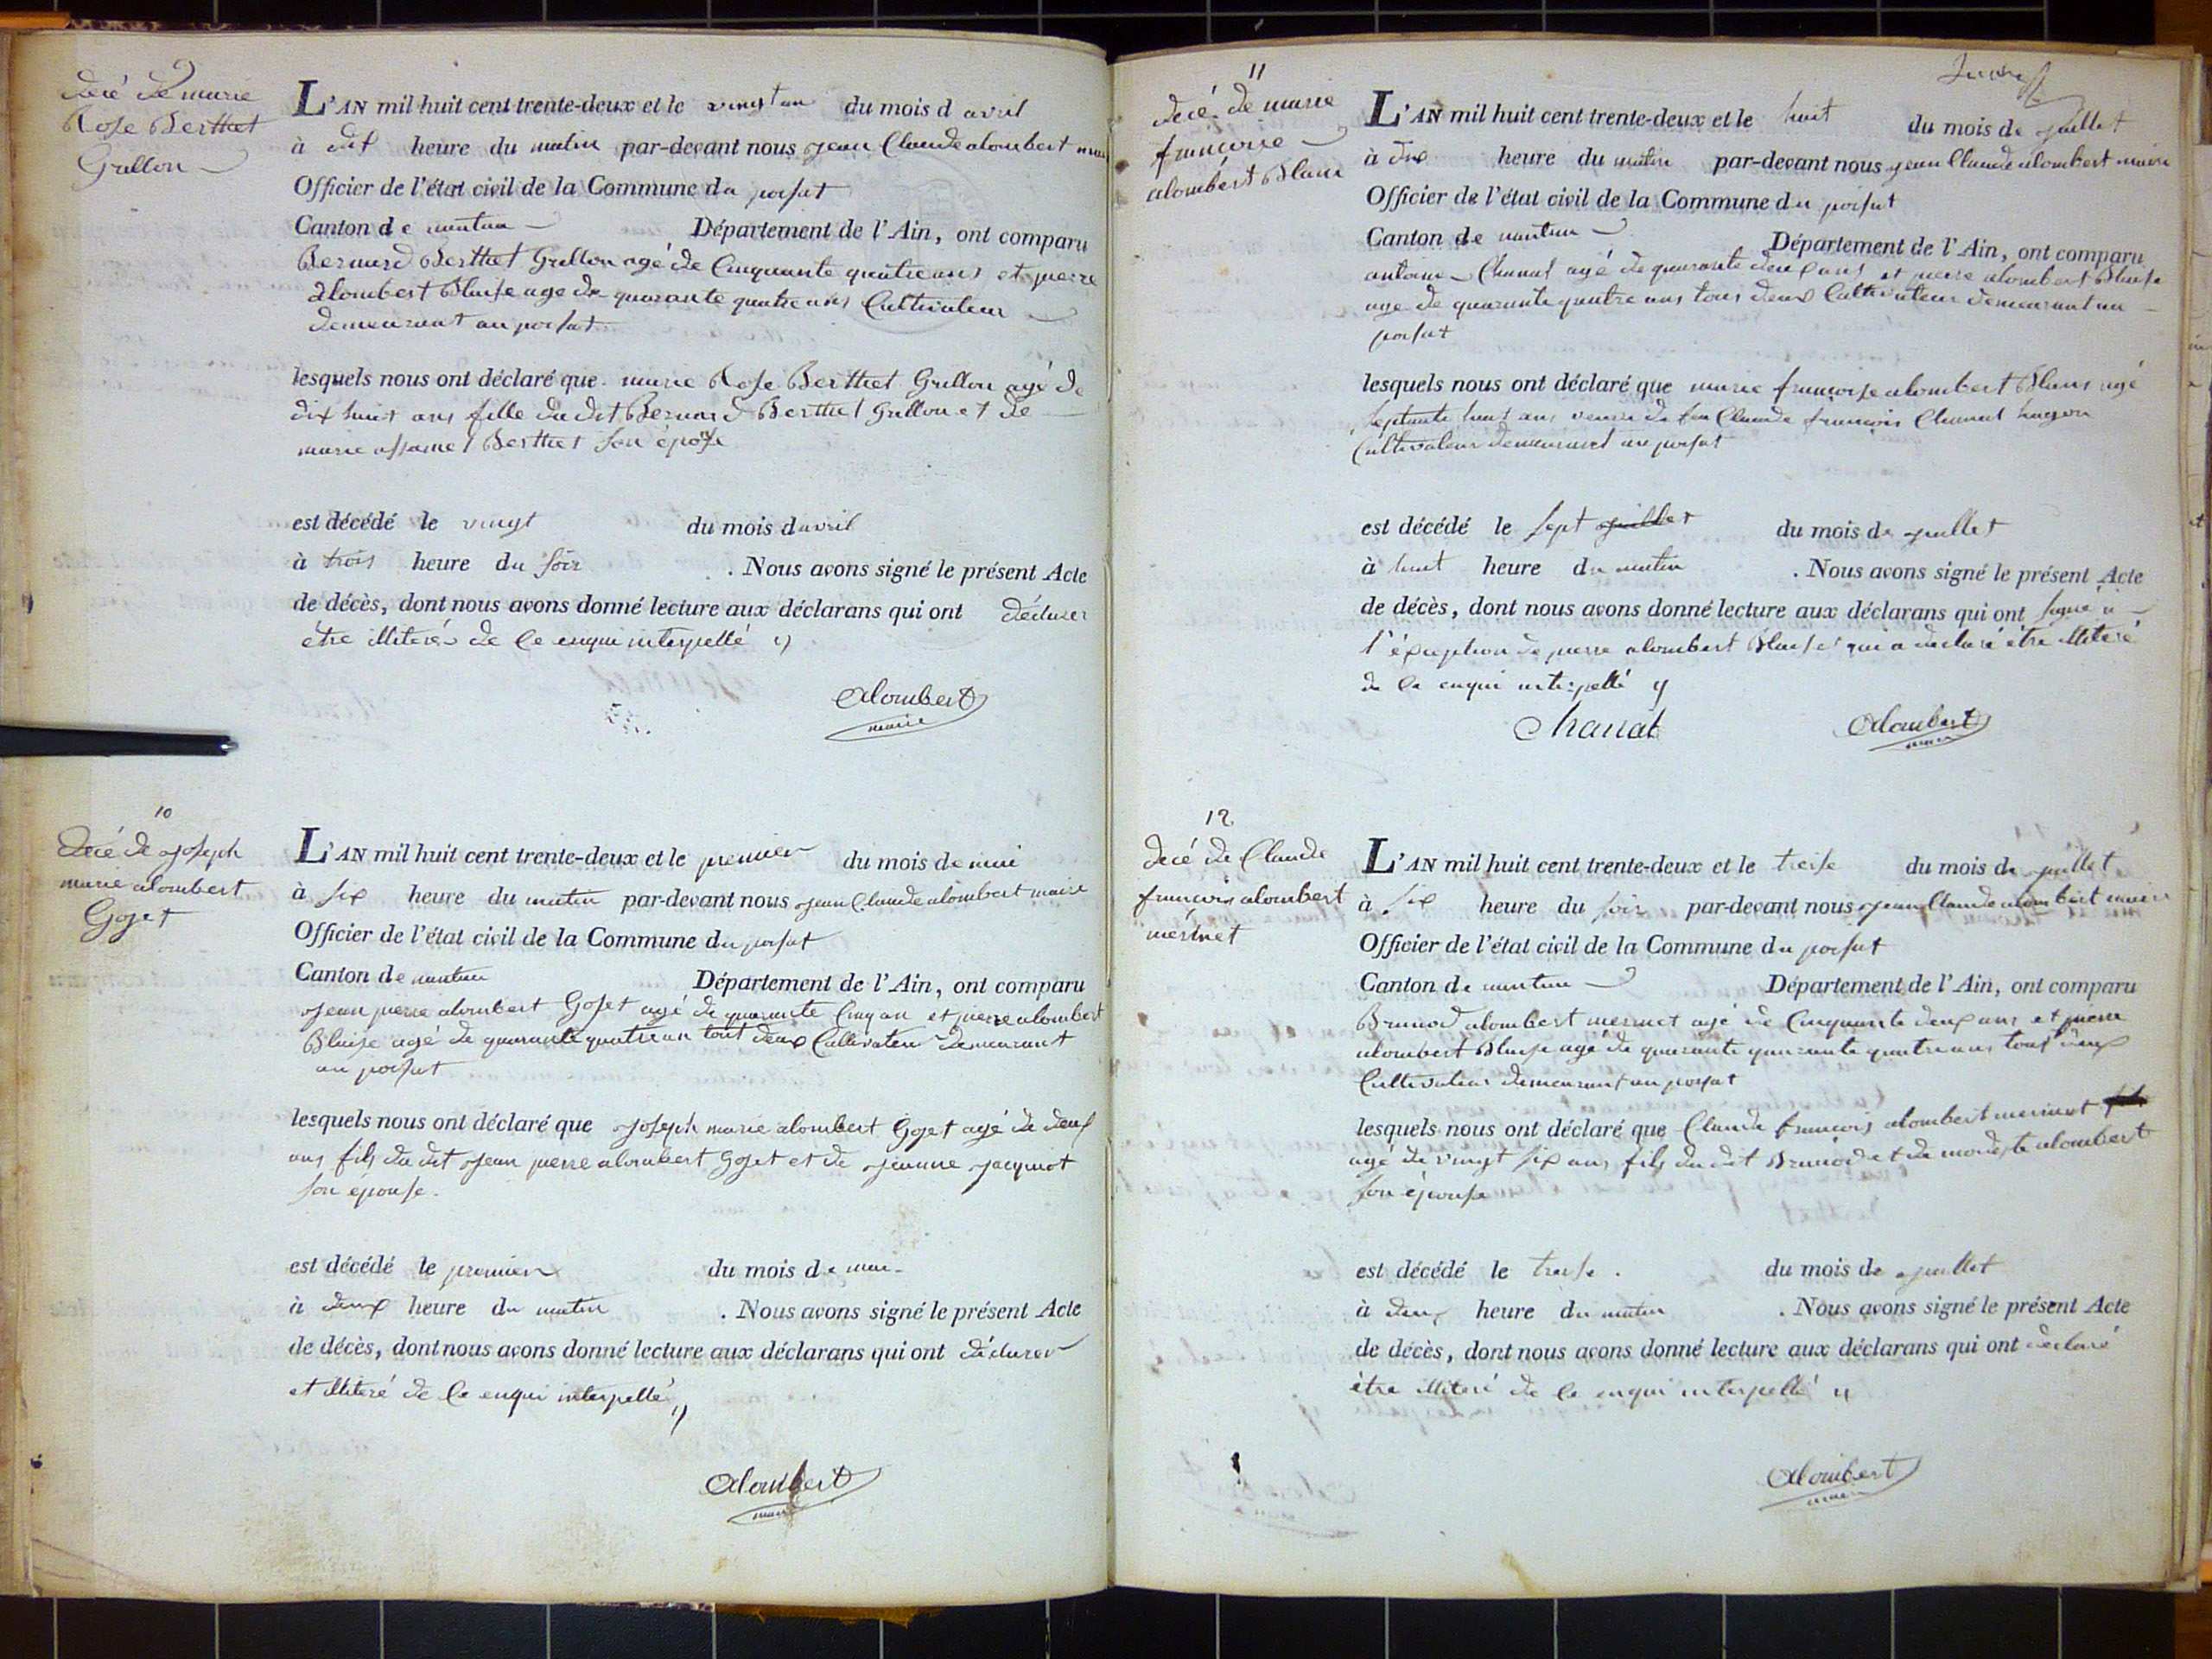 9
decé de marie
Rose Berthet
Grillon
L'AN mil huit cent trente-deux et le vingt un du mois d avril
à dix heure du matin par-devant nous jean Claude alombert maire
Officier de l'état civil de la Commune du poisat
Canton de nantua Département de l'Ain, ont comparu
Bernard Berthet Grillon agé de Cinquante quatre ans et pierre
alombert Blaise age de quarante quatre ans Cultivateur
demeurant au poisat
lesquels nous ont déclaré que marie Rose Berthet Grillon agé de
dix huit ans fille du dit Bernard Berthet Grillon et de
marie Berthet son épose
est décédé le vingt du mois d avril
à trois heure du soir . Nous avons signé le présent Acte
de décès, dont nous avons donné lecture aux déclarans qui ont déclarer
étre illiteré de ce enqui interpellé
Alombert
maire
10
decé de joseph
marie alombert
Gojet
L'AN mil huit cent trente-deux et le premier du mois de mai
à six heure du matin par-devant nous jean Claude alombert maire
Officier de l'état civil de la Commune du poisat
Canton de nantua Département de l'Ain, ont comparu
jean pierre alombert Gojet agé de quarante Cinq an et pierre alombert
Blaise agé de quarante quatre an tout deux Cultivateur demeurant
au poisat
lesquels nous ont déclaré que joseph marie alombert Gojet agé de deux
ans fils du dit jean pierre alombert Gojet et de jeanne jacquiot
son épouse.
est décédé le premier du mois de mai
à deux heure du matin . Nous avons signé le présent Acte
de décès, dont nous avons donné lecture aux déclarans qui ont déclarer
et illiteré de ce enqui interpellé
Alombert
maire
11
decé de marie
francoise
alombert Blanc
L'AN mil huit cent trente-deux et le huit du mois de juillet
à dix heure du matin par-devant nous jean Claude alombert maire
Officier de l'état civil de la Commune du poisat
Canton de nantua Département de l'Ain, ont comparu
antoine Chanal agé de quarante deux ans et pierre alombert Blaise
age de quarante quatre ans tous deux Cultivateur demeurant au
poisat
lesquels nous ont déclaré que marie francoise alombert Blanc agé
septante huit ans veuve de feu Claude francois Chanal hugon
Cultivateur demeurant au poisat
est décédé le sept juillet du mois de juillet
à huit heure du matin . Nous avons signé le présent Acte
de décès, dont nous avons donné lecture aux déclarans qui ont signé à
l'éxception de pierre alombert Blaise qui a declaré étre illiteré
de ce enqui interpellé
Chanal Alombert
maire
12
decé de Claude
francois alombert
mermet
L'AN mil huit cent trente-deux et le treise du mois de juillet
à six heure du soir par-devant nous jean Claude alombert maire
Officier de l'état civil de la Commune du poisat
Canton de nantua Département de l'Ain, ont comparu
Brunod alombert mermet agé de Cinquante deux ans et pierre
alombert Blaise agé de quarante quarante quatre ans tous deux
Cultivateur demeurant au poisat
lesquels nous ont déclaré que Claude francois alombert mermet fils
agé de vingt six ans fils du dit Brunod et de modeste alombert
son épouse
est décédé le treise . du mois de juillet
à deux heure du matin . Nous avons signé le présent Acte
de décès, dont nous avons donné lecture aux déclarans qui ont déclaré
étre illiteré de ce enqui interpellé
Alombert
maire